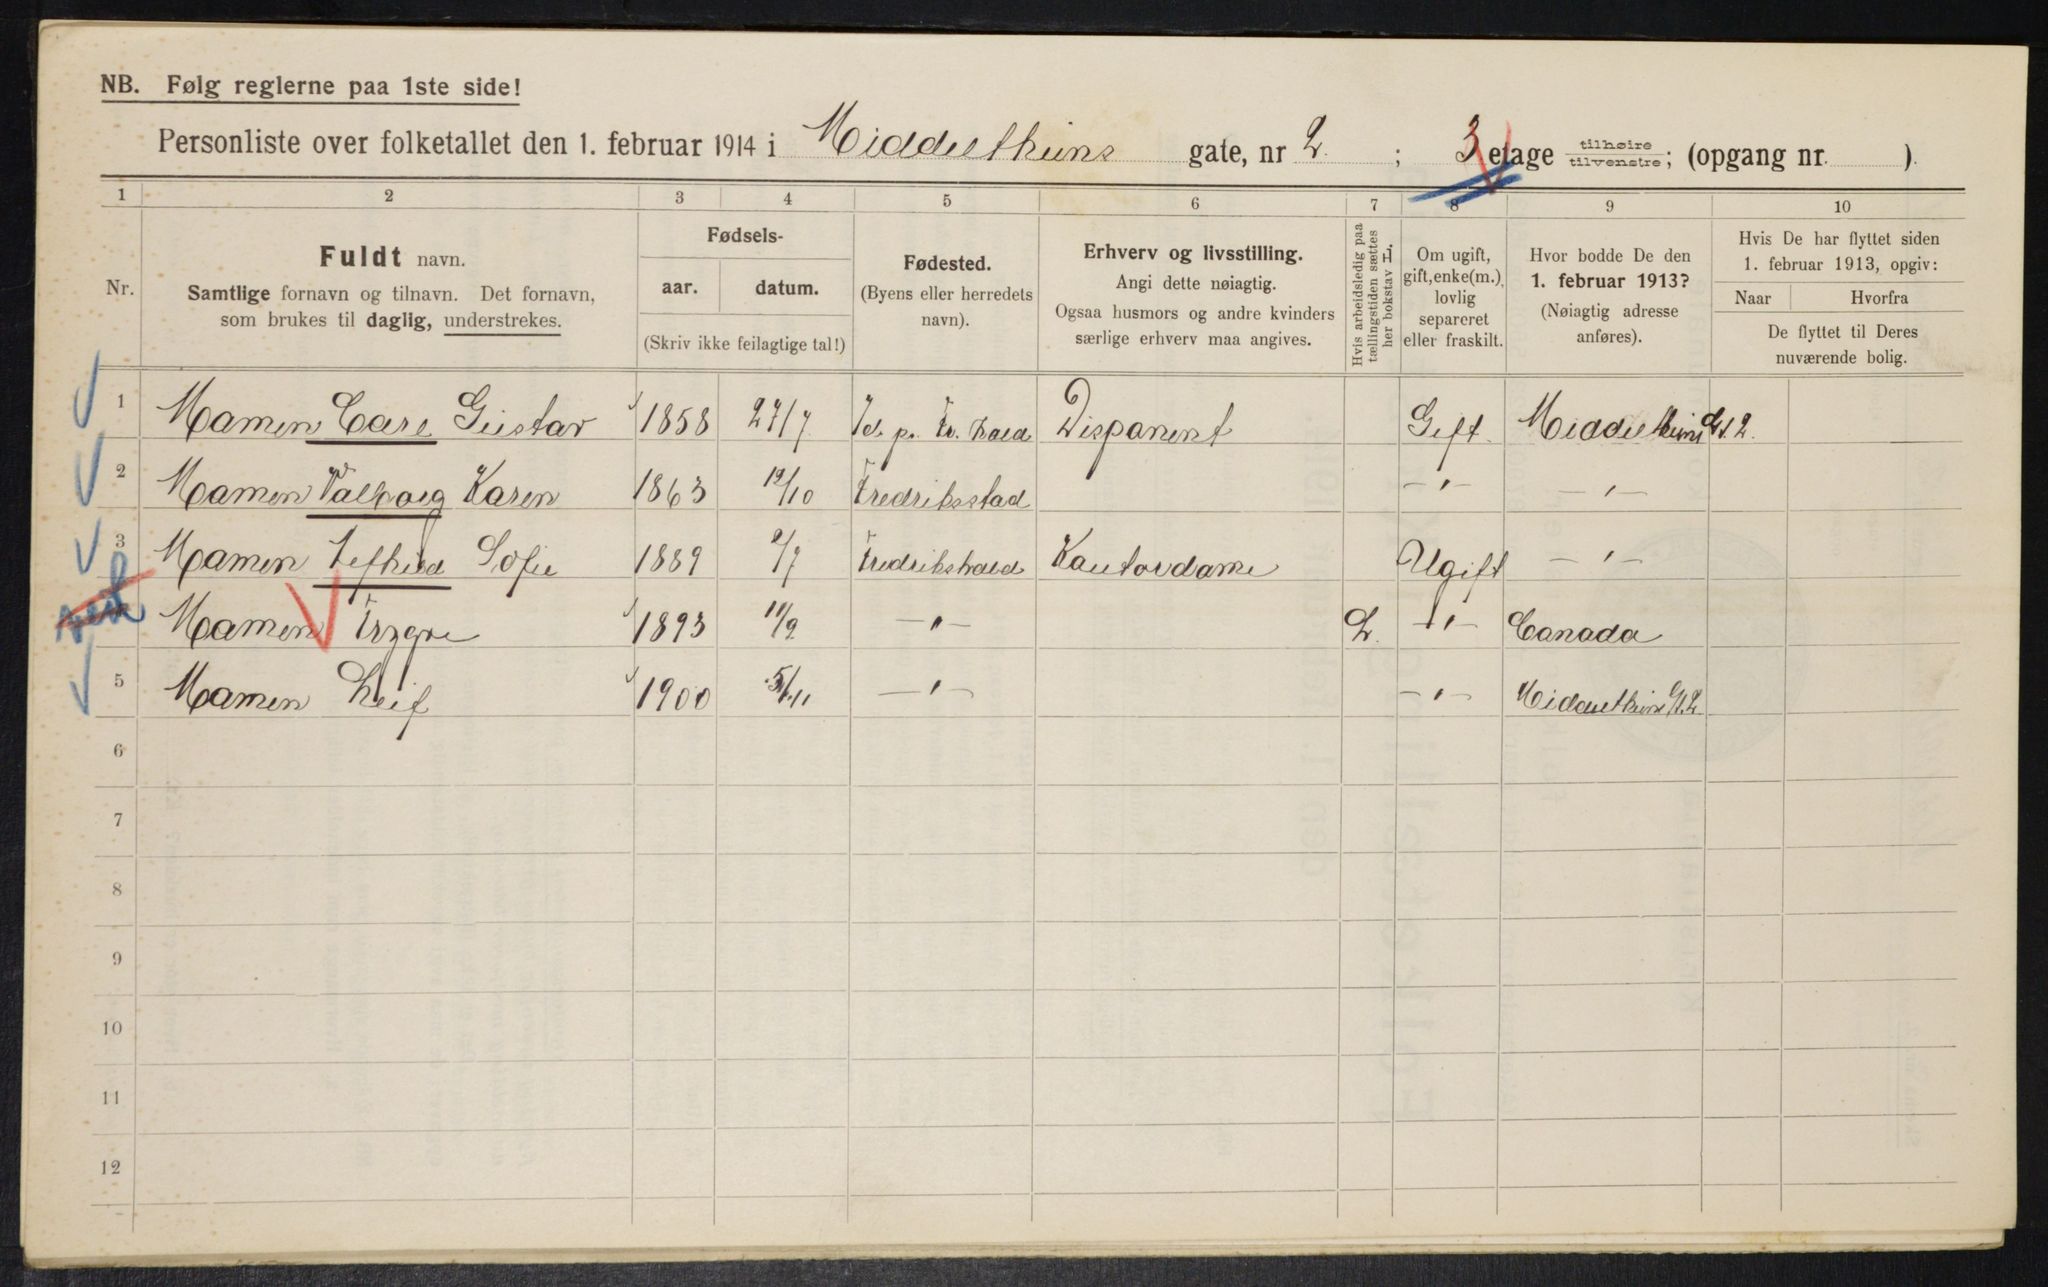 NB. Følg reglerne paa 1ste side!
Personliste over folketallet den 1. februar 1914 i Middelthuns gate, nr 2 ; 3 etage tilhøire tilvenstre; (opgang nr. ).
1 2 3 4 5 6 7 8 9 10
Nr.
Fuldt navn.
Samtlige fornavn og tilnavn. Det fornavn,
som brukes til daglig, understrekes.
Fødsels-
aar. datum.
(Skriv ikke feilagtige tal!)
Fødested.
(Byens eller herredets
navn).
Erhverv og livsstilling.
Angi dette nøiagtig.
Ogsaa husmors og andre kvinders
særlige erhverv maa angives.
Hvis arbeidsledig paa
tællingstiden sættes
her bokstav L.
Om ugift,
gift, enke(m.),
lovlig
separeret
eller fraskilt.
Hvor bodde De den
1. februar 1913?
(Nøiagtig adresse
anføres).
Hvis De har flyttet siden
1. februar 1913, opgiv:
Naar Hvorfra
De flyttet til Deres
nuværende bolig.
1 Mamen Carl Gustav 1858 27/7 Id. p. Fr. hald Disponent Gift Middelthuns Gt. 2.
2 Mamen Valborg Karen 1863 12/10 Fredriksstad —"— —"—
3 Mamen Sofie 1889 /7 Fredrikshald Kontordame Ugift —"—
Mamen Trygve 1893 11/9 —"— L. —"— Canada
5 Mamen Leif 1900 5/11 —"— —"— Middelthuns Gt. 2
6
7
8
9
10
11
12